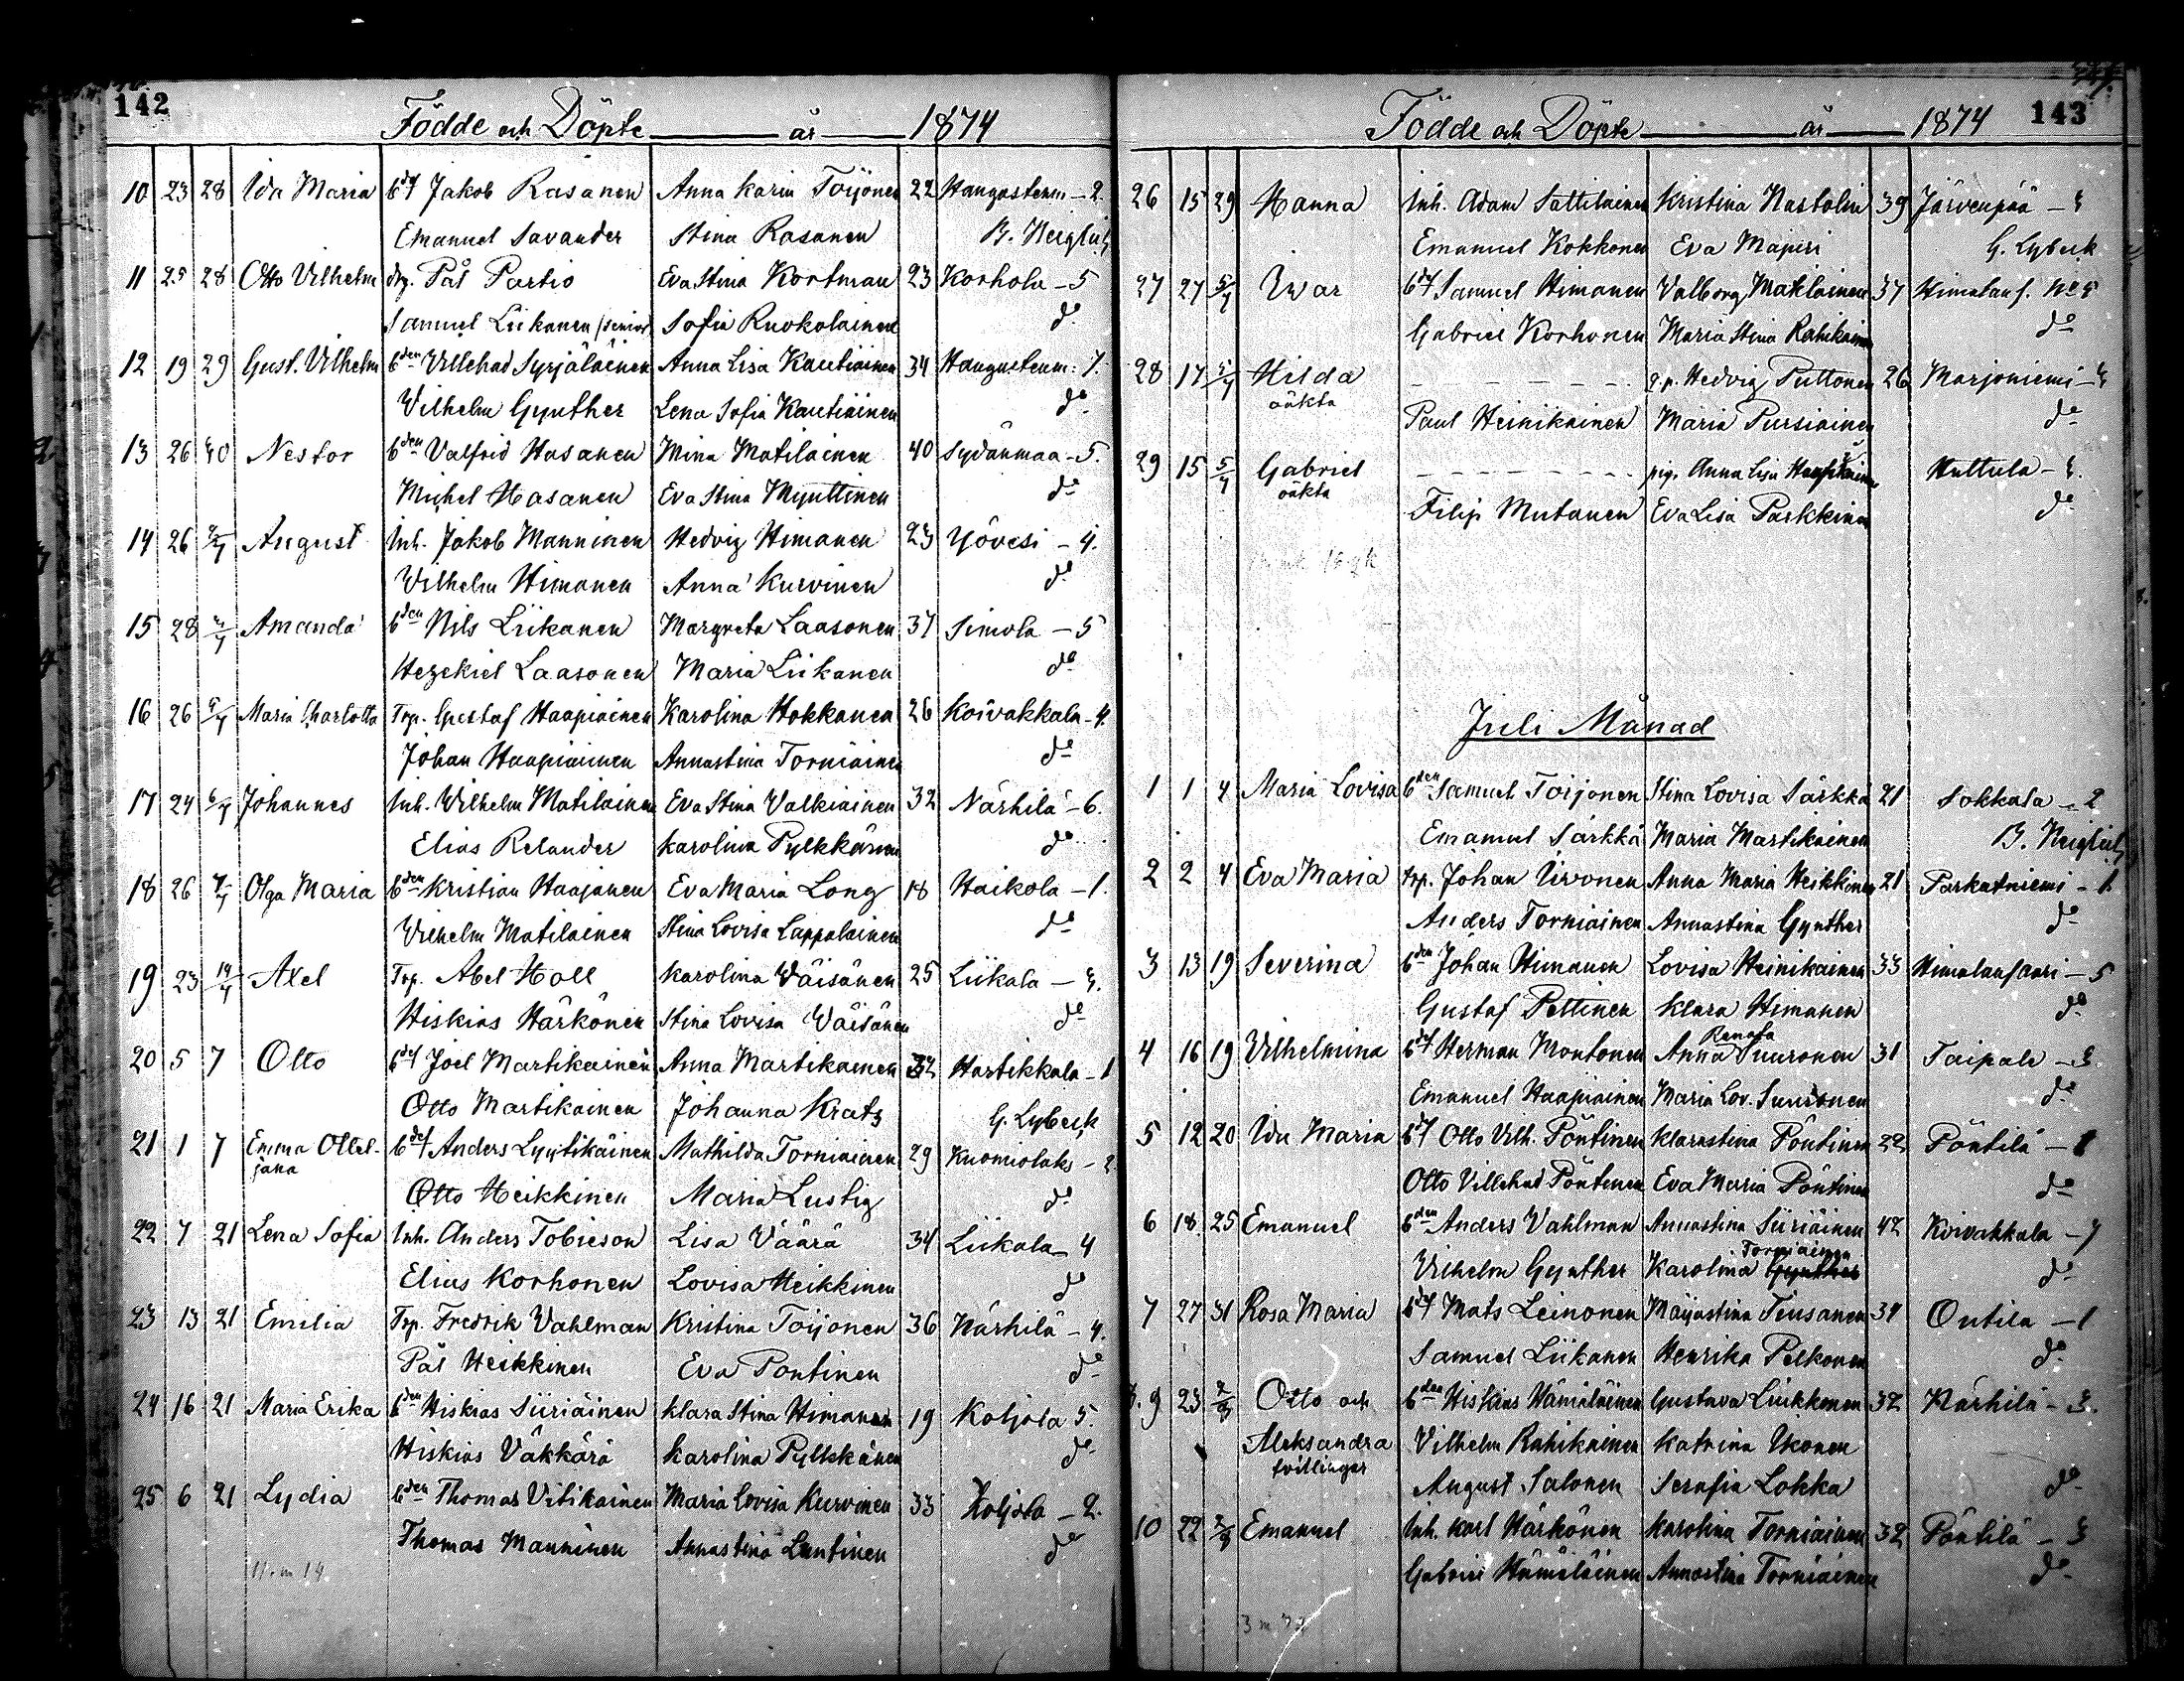 142
Födde och Döpte år 1874
10 23 28 Ida Maria bdsf Jakob Räsänen Anna Karin Toijonen 22 Haugastenm - 2.
Emanuel Savander Stina Räsänen B. Neiglick
11 25 28 Otto Vilhelm drg. Pål Partio Eva Stina Kortman 23 Korhola - 5
Samuel Liikanen /senior Sofia Ruokolainen do
12 19 29 Gust. Vilhelm bden Villehad Syrjäläinen Anna Lisa Kautiainen 34 Haugastenm: 7.
Vilhelm Gynther Lena Sofia Kautiainen do
13 26 30 Nestor bden Valfrid Hasanen Mina Matilainen 40 Sydänmaa - 5.
Mickel Hasanen Eva Stina Mynttinen do
14 26 August Inh. Jakob Manninen Hedvig Himanen 23 Yövesi - 4.
Vilhelm Himanen Anna Kurvinen do
15 28 4/7 Amanda bden Nils Liikanen Margreta Laasonen 37 Simola - 5
Hezekiel Laasonen Maria Liikanen do
16 26 Maria Charlotta Trp. Gustaf Haapiainen Karolina Hokkanen 26 Koivakkala - 4.
Johan Haapiainen Annastina Torniainen do
17 24 Johannes Inh. Wilhelm Matilainen Eva Stina Valkiainen 32 Närhilä - 6.
Elias Relander Karolina Pylkkänen do
18 26 Olga Maria bden Kristian Haajanen Eva Maria Long 18 Haikola - 1.
Vilhelm Matilainen Stina Lovisa Lappalainen do
19 23 19/7 Axel Trp. Abel Holl Karolina Wäisänen 25 Liikala - 3.
Hiskias Härkönen Stina Lovisa Wäisänen do
20 5 7 Otto bdsf Joel Martikainen Anna Martikainen 32 Hartikkala - 1
Otto Martikainen Johanna Kratz G. Lybeck
21 1 7 Emma Ottel-
jana bdsf Anders Lyytikäinen Mathilda Torniainen 29 Kuomiolaks - 2
Otto Heikkinen Maria Lustig do
22 7 21 Lena Sofia Inh. Anders Tobieson Lisa Väärä 34 Liikala - 4
Elias Korhonen Lovisa Heikkinen do
23 13 21 Emilia Trp. Fredrik Vahlman Kristina Toijonen 36 Närhilä - 4.
Pål Heikkinen Eva Pontinen do
24 16 21 Maria Erika bden Hiskias Siiriäinen Klara Stina Himanen 19 Koljola 5.
Hiskias Väkkärä Karolina Pylkkänen do
25 6 21 Lydia bden Thomas Vitikainen Maria Lovisa Kurvinen 33 Koljola - 2.
Thomas Manninen Annastina Lantinen do
11 m 14
143
Födde och Döpte år 1874
26 15 29 Hanna Inh. Adam Sattilainen Kristina Nastolin 39 Järvenpää - 3
Emanuel Kokkonen Eva Majuri G. Lybeck
27 27 5/7 Iwar bdsf Samuel Himanen Valborg Matilainen 37 Himalans. No 5
Gabriel Korhonen Maria Stina Rahikainen do
28 17 5/7 Hilda - - - - - q.p. Hedvig Puttonen 26 Marjoniemi - 3
oäkta Paul Heinikainen Maria Pursiainen do
29 15 5/7 Gabriel - - - - - pig. Anna Lisa Huttula - 3.
oäkta Filip Mutanen Eva Lisa Parkkinen do
Juli Månad
1 1 4 Maria Lovisa bden Samuel Toijonen Stina Lovisa Särkkä 21 Sokkala - 2
Emanuel Särkkä Maria Martikainen B. Neiglick
2 2 4 Eva Maria trp. Johan Urvonen Anna Maria Heikkinen 21 Parkatniemi - 1.
Anders Torniainen Annastina Gynther do
3 13 19 Severina bden Johan Himanen Lovisa Heinikainen 33 Himalansaari - 5
Gustaf Pettinen Klara Himanen do
4 16 19 Vilhelmina bdsf Herman Montonen Anna Renata Suuronen 31 Taipale - 3.
Emanuel Haapiainen Maria Lov. Suuronen do
5 12 20 Ida Maria bdsf Otto Vilh. Pöntinen Klarastina Pöntinen 22 Pöntilä - 1
Otto Villehad Pöntinen Eva Maria Pöntinen do
6 18 25 Emanuel bden Anders Vahlman Annastina Siiriäinen 42 Koivakkala - 7
Vilhelm Gynther Karolina Gynther Torniainen do
7 27 31 Rosa Maria bdsf Mats Leinonen Maijastina Teusanen 31 Ontila - 1
Samuel Liikanen Henrika Pelkonen do
8. 9 23 2/8 Otto och bden Hiskias Hämäläinen Gustava Liukkonen 32 Närhilä - 3.
Aleksandra Vilhelm Rahikainen Katrina Ikonen
tvillingar August Salonen Serafia Lokka do
10 22 2/8 Emanuel Inh. Karl Härkönen Karolina Torniainen 32 Pöntilä - 3
Gabriel Hämäläinen Annastina Torniainen do
3 m 7 q